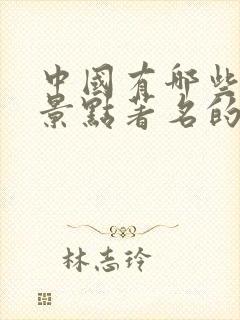 中國有哪些
景點著名的
林志玲